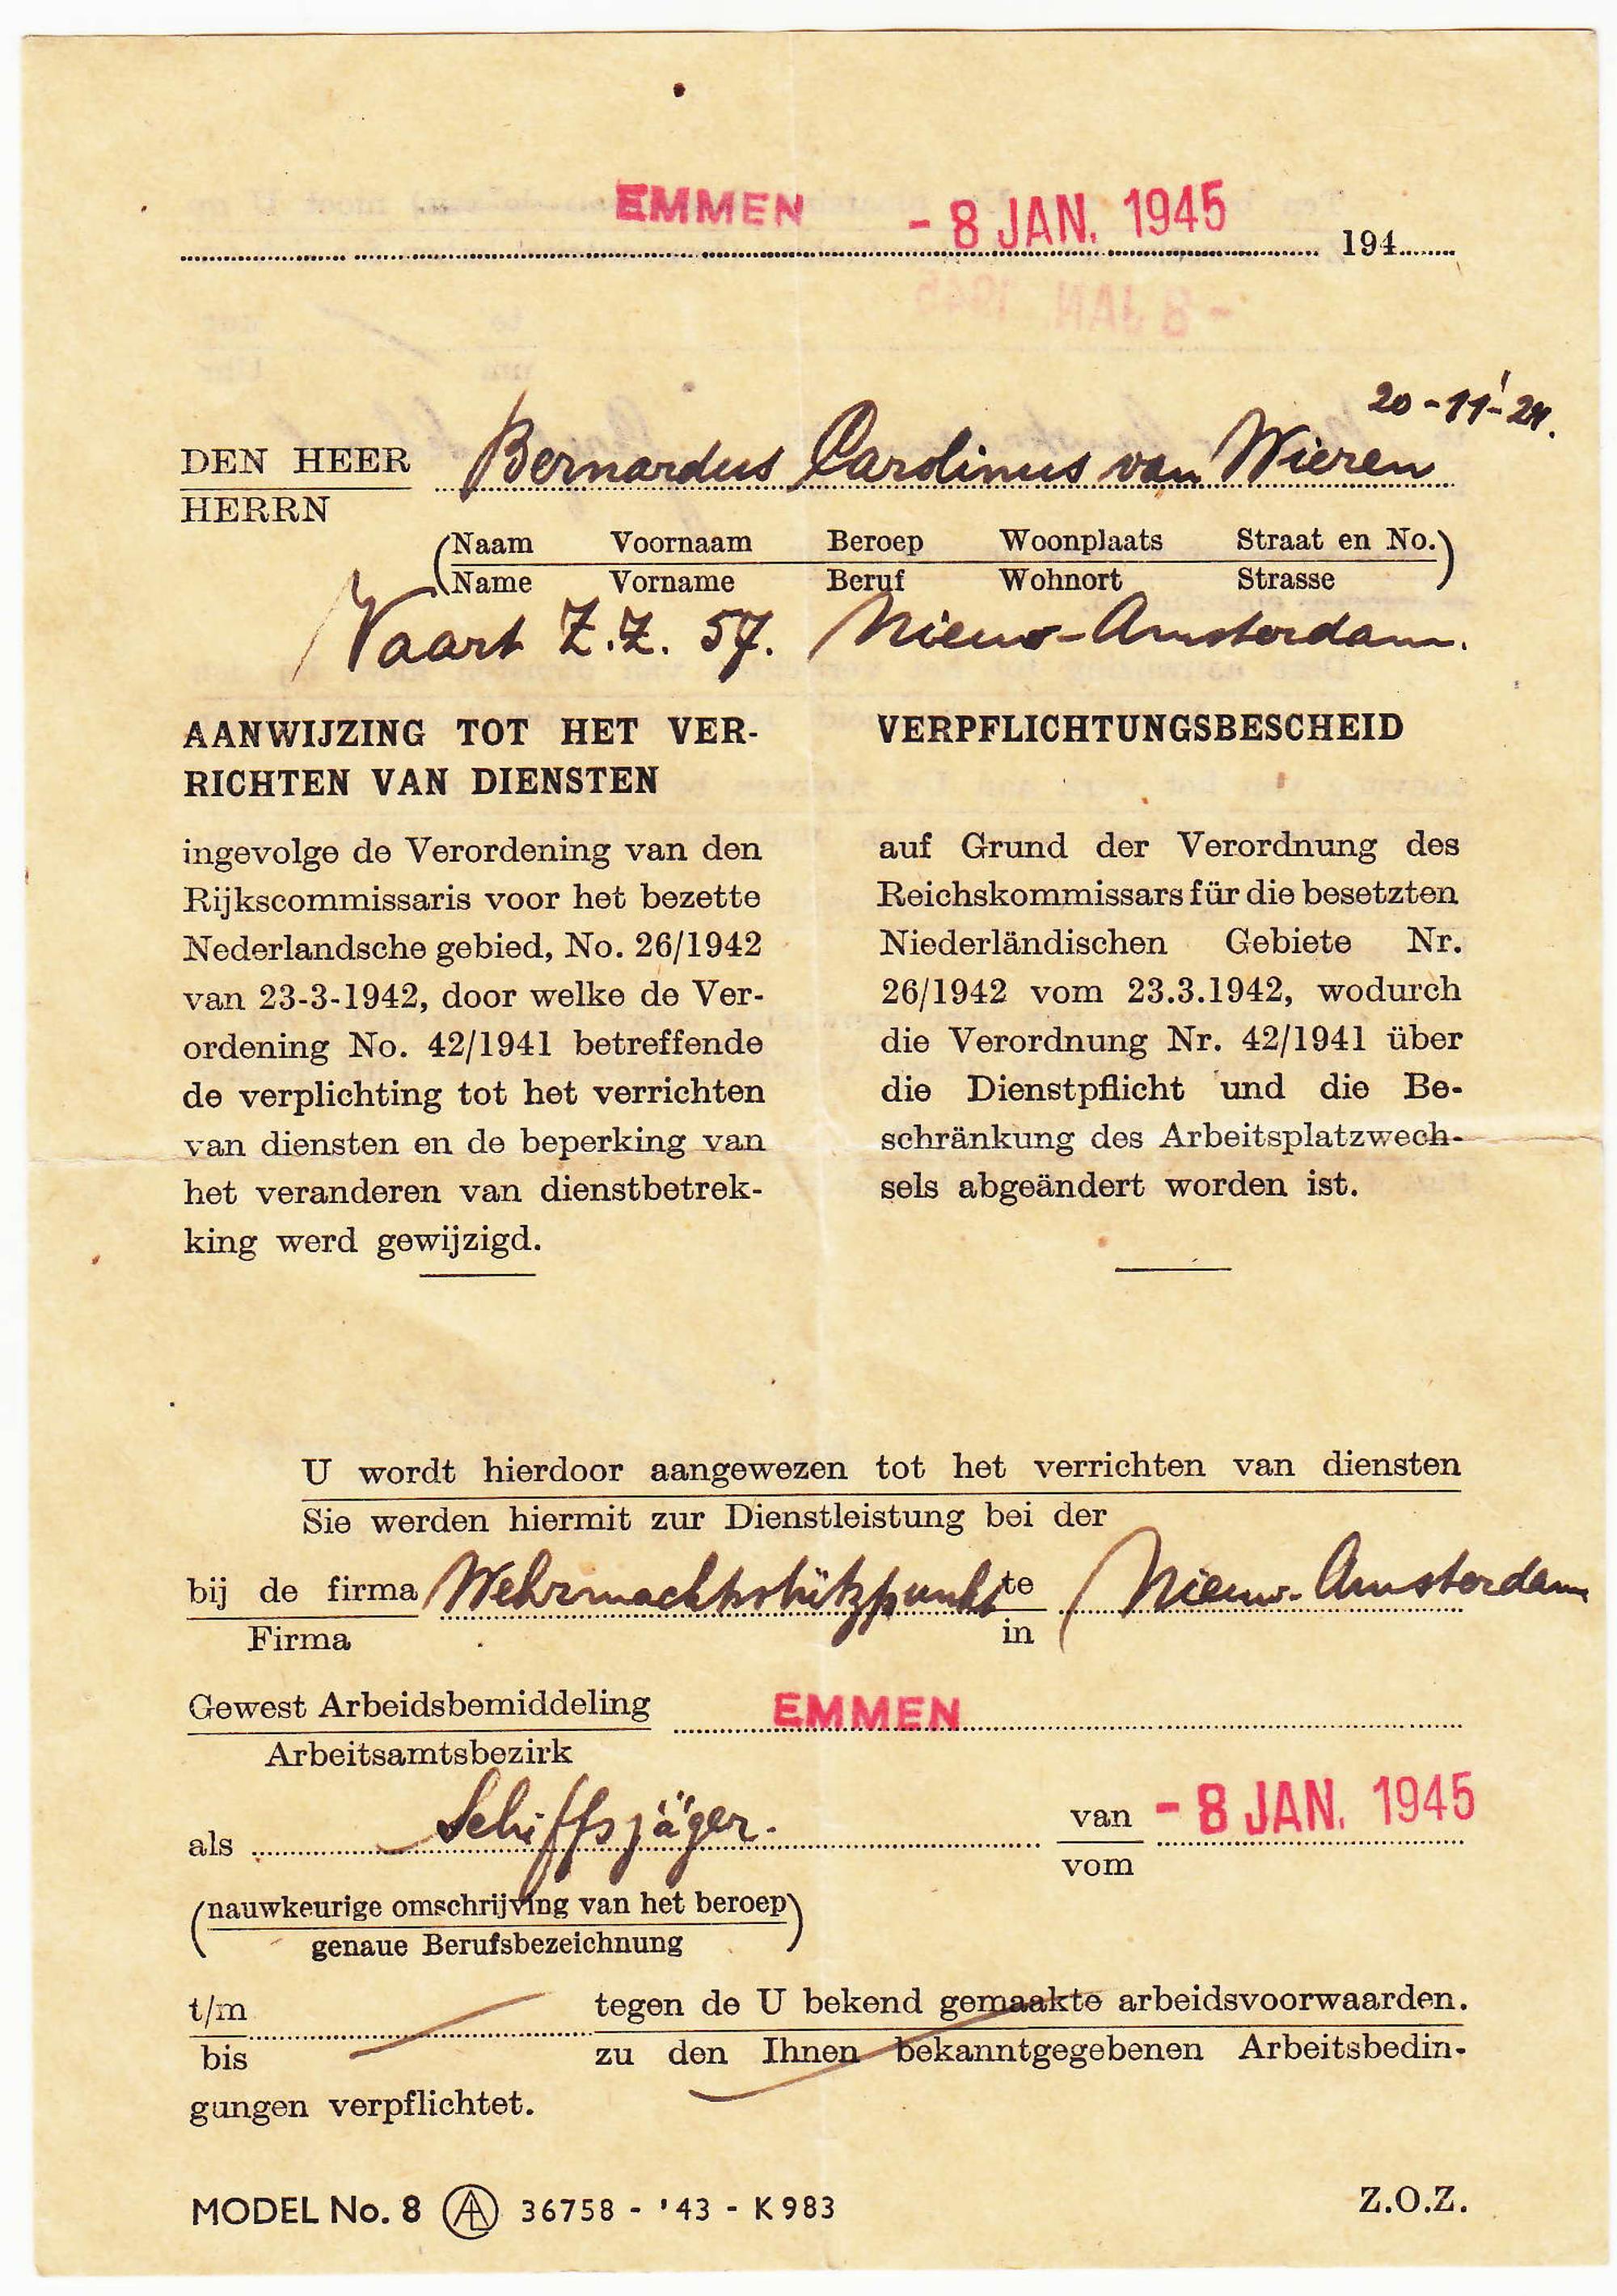 EMMEN - 8 JAN. 1945 194
20-11-'24.
DEN HEER Bernardus Carolinus van Wieren
HERRN
(Naam Voornaam Beroep Woonplaats Straat en No.)
Name Vorname Beruf Wohnort Strasse
Vaart Z.Z. 57. Nieuw-Amsterdam.
AANWIJZING TOT HET VER-
RICHTEN VAN DIENSTEN
ingevolge de Verordening van den
Rijkscommissaris voor het bezette
Nederlandsche gebied, No. 26/1942
van 23-3-1942, door welke de Ver-
ordening No. 42/1941 betreffende
de verplichting tot het verrichten
van diensten en de beperking van
het veranderen van dienstbetrek-
king werd gewijzigd.
VERPFLICHTUNGSBESCHEID
auf Grund der Verordnung des
Reichskommissars für die besetzten
Niederländischen Gebiete Nr.
26/1942 vom 23.3.1942, wodurch
die Verordnung Nr. 42/1941 über
die Dienstpflicht und die Be-
schränkung des Arbeitsplatzwech-
sels abgeändert worden ist.
U wordt hierdoor aangewezen tot het verrichten van diensten
Sie werden hiermit zur Dienstleistung bei der
bij de firma Wehrmachtstützpunkt te Nieuw-Amsterdam
Firma in
Gewest Arbeidsbemiddeling EMMEN
Arbeitsamtsbezirk
als Schiffsjäger. van - 8 JAN. 1945
vom
(nauwkeurige omschrijving van het beroep)
genaue Berufsbezeichnung
t/m tegen de U bekend gemaakte arbeidsvoorwaarden.
bis zu den Ihnen bekanntgegebenen Arbeitsbedin-
gungen verpflichtet.
MODEL No. 8 AL 36758 - '43 - K983 Z.O.Z.